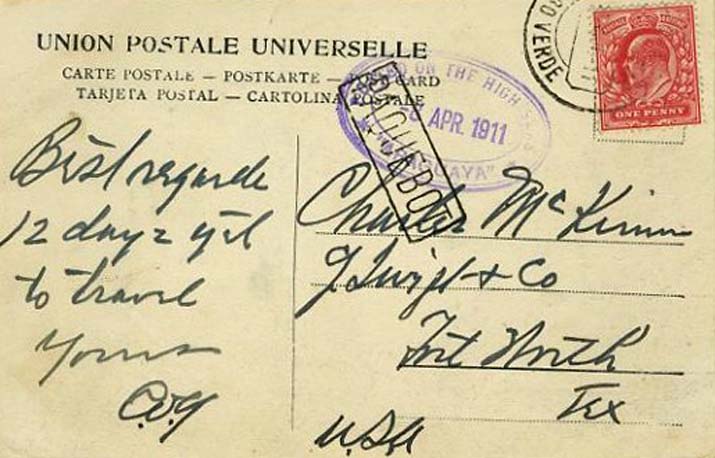 UNION POSTALE UNIVERSELLE
CARTE POSTALE — POSTKARTE — POST CARD
TARJETA POSTAL — CARTOLINA POSTALE
ON THE HIGH SEAS
APR. 1911
PAQUEBOT
O VERDE
ONE PENNY
Best regards
12 days yet
to travel
Yours
Charles McKinn
Swift & Co
Fort Worth
Tex
U.S.A